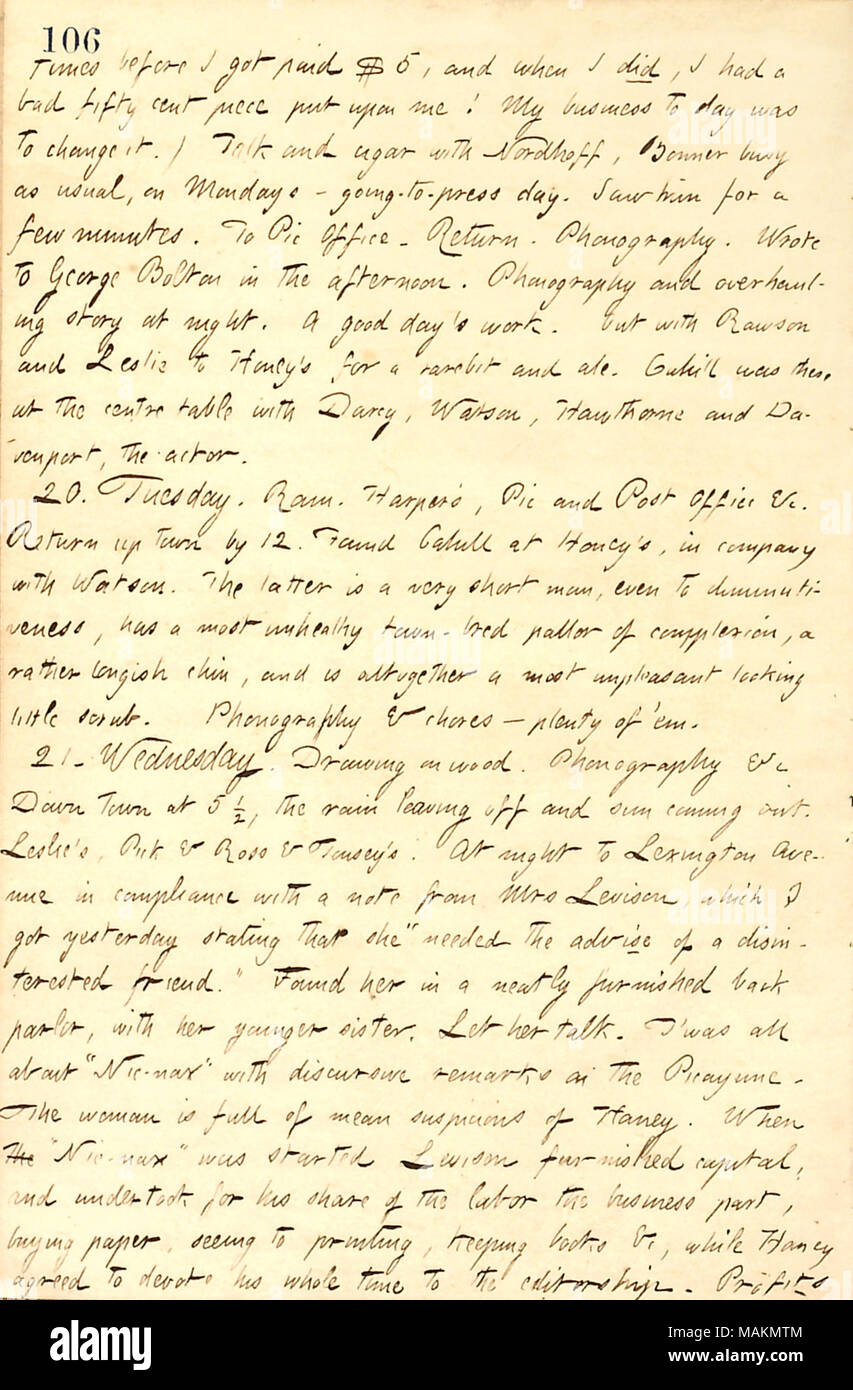 106
times before I got paid $ 5, and when I did, I had a
bad fifty cent piece put upon me! My business to day was
to change it.) Talk and cigar with Nordhoff, Bonner busy
as usual, on Mondays – going-to-press day. Saw him for a
few minutes. To Pic Office – Return. Phonography. Wrote
to George Bolton in the afternoon. Phonography and overhaul-
ing story at night. A good day's work. Out with Rawson
and Leslie to Honey's for a rarebit and ale. Cahill was there
at the centre table with Darcy, Watson, Hawthorne and Da-
venport, the actor.
20. Tuesday. Rain. Harper's, Pic and Post Office &c.
Return up town by 12. Found Cahill at Honey's, in company
with Watson. The latter is a very short man, even to diminuti-
veness, has a most unhealthy town-bred pallor of complexion, a
rather longish chin, and is altogether a most unpleasant looking
little scrub. Phonography & chores – plenty of 'em.
21. Wednesday. Drawing on wood. Phonography &c
Down town at 5 ½, the rain leaving off and sun coming out.
Leslie's, Pick & Ross & Tousey's. At night to Lexington Ave-
nue in compliance with a note from Mrs Levison, which I
got yesterday stating that she "needed the advise of a disin-
terested friend." Found her in a neatly furnished back
parlor, with her younger sister. Let her talk. T'was all
about "Nic-nax" with discursive remarks on the Picayune –
The woman is full of mean suspicions of Haney. When
the "Nic-nax" was started Levison furnished capital,
and undertook for his share of the labor the business part,
buying paper, seeing to printing, keeping books &c, while Haney
agreed to devote his whole time to the editorship. Profits
alamy
Image ID: MAKMTM
www.alamy.com